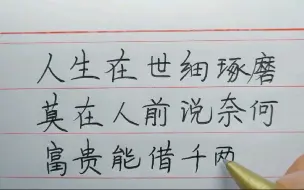 人生在世细琢磨
莫在人前说奈何
富贵能借千两